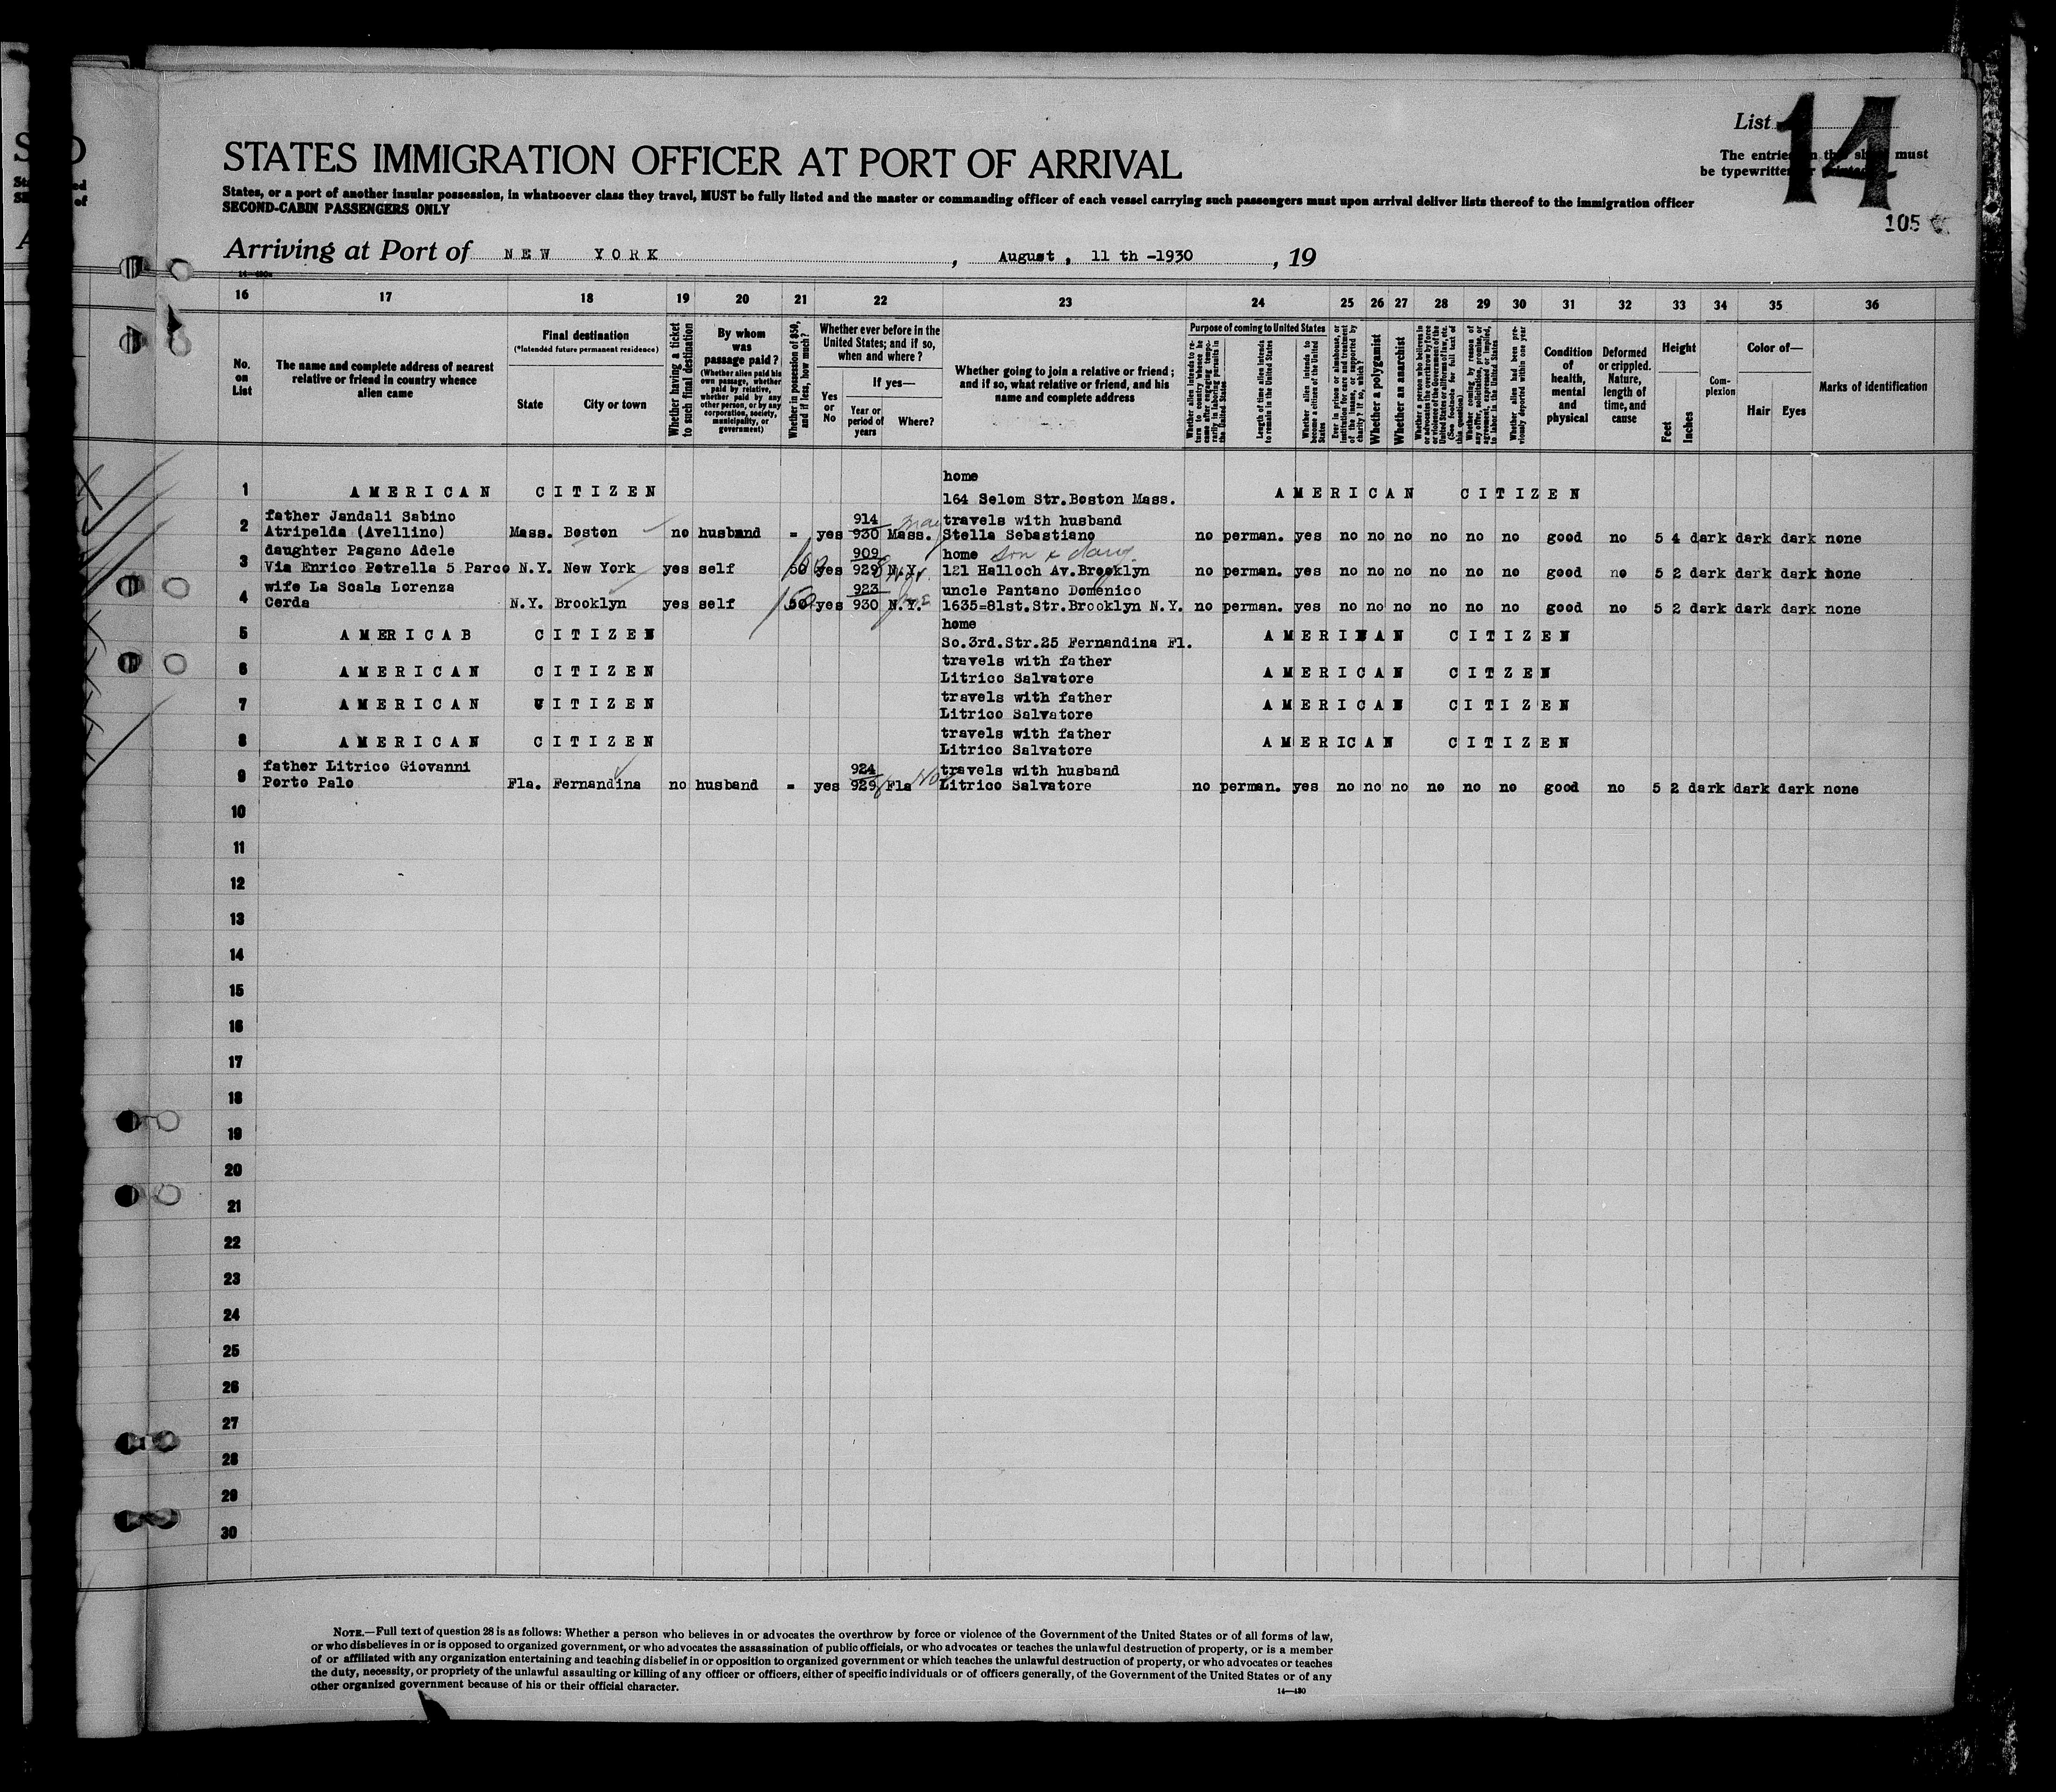 List 14
STATES IMMIGRATION OFFICER AT PORT OF ARRIVAL
The entries in this sheet must
be typewritten or printed
States, or a port of another insular possession, in whatsoever class they travel, MUST be fully listed and the master or commanding officer of each vessel carrying such passengers must upon arrival deliver lists thereof to the immigration officer
SECOND-CABIN PASSENGERS ONLY
105
Arriving at Port of NEW YORK, August, 11 th -1930, 19
14-430a
16 17 18 19 20 21 22 23 24 25 26 27 28 29 30 31 32 33 34 35 36
No. on List
The name and complete address of nearest relative or friend in country whence alien came
Final destination
(*Intended future permanent residence)
State
City or town
Whether having a ticket to such final destination
By whom was passage paid?
(Whether alien paid his own passage, whether paid by relative, whether paid by any other person, or by any corporation, society, municipality, or government)
Whether in possession of $50, and if less, how much?
Whether ever before in the United States; and if so, when and where?
Yes or No
If yes—
Year or period of years
Where?
Whether going to join a relative or friend; and if so, what relative or friend, and his name and complete address
Purpose of coming to United States
Whether alien intends to return to country whence he came after engaging temporarily in laboring pursuits in the United States
Length of time alien intends to remain in the United States
Whether alien intends to become a citizen of the United States
Ever in prison or almshouse, or institution for care and treatment of the insane, or supported by charity? If so, which?
Whether a polygamist
Whether an anarchist
Whether a person who believes in or advocates the overthrow by force or violence of the Government of the United States or all forms of law, etc. (See footnote for full text of this question)
Whether coming by reason of any offer, solicitation, promise, or agreement, expressed or implied, to labor in the United States
Whether alien had been previously deported within one year
Condition of health, mental and physical
Deformed or crippled. Nature, length of time, and cause
Height
Feet
Inches
Complexion
Color of—
Hair
Eyes
Marks of identification
home
1 AMERICAN CITIZEN 164 Selom Str.Boston Mass. AMERICAN CITIZEN
father Jandali Sabino 914 may travels with husband
2 Atripelda (Avellino) Mass. Boston no husband - yes 930 Mass. Stella Sebastiano no perman. yes no no no no no no good no 5 4 dark dark dark none
daughter Pagano Adele 909 home son & daug.
3 Via Enrico Petrella 5 Parco N.Y. New York yes self 50 yes 929 N.Y. 121 Halloch Av.Brooklyn no perman. yes no no no no no no good no 5 2 dark dark dark none
wife La Scala Lorenza 923 uncle Pantano Domenico
4 Cerda N.Y. Brooklyn yes self 50 yes 930 N.Y. 1635=81st.Str.Brooklyn N.Y. no perman. yes no no no no no no good no 5 2 dark dark dark none
home
5 AMERICAB CITIZEN So.3rd.Str.25 Fernandina Fl. AMERINAN CITIZEN
travels with father
6 AMERICAN CITIZEN Litrico Salvatore AMERICAN CITZEN
travels with father
7 AMERICAN CITIZEN Litrico Salvatore AMERICAN CITIZEN
travels with father
8 AMERICAN CITIZEN Litrico Salvatore AMERICAN CITIZEN
father Litrico Giovanni 924 travels with husband
9 Porto Palo Fla. Fernandina no husband - yes 929 Fla Litrico Salvatore no perman. yes no no no no no no good no 5 2 dark dark dark none
10
11
12
13
14
15
16
17
18
19
20
21
22
23
24
25
26
27
28
29
30
NOTE.—Full text of question 28 is as follows: Whether a person who believes in or advocates the overthrow by force or violence of the Government of the United States or of all forms of law,
or who disbelieves in or is opposed to organized government, or who advocates the assassination of public officials, or who advocates or teaches the unlawful destruction of property, or is a member
of or affiliated with any organization entertaining and teaching disbelief in or opposition to organized government or which teaches the unlawful destruction of property, or who advocates or teaches
the duty, necessity, or propriety of the unlawful assaulting or killing of any officer or officers, either of specific individuals or of officers generally, of the Government of the United States or of any
other organized government because of his or their official character.
14—430